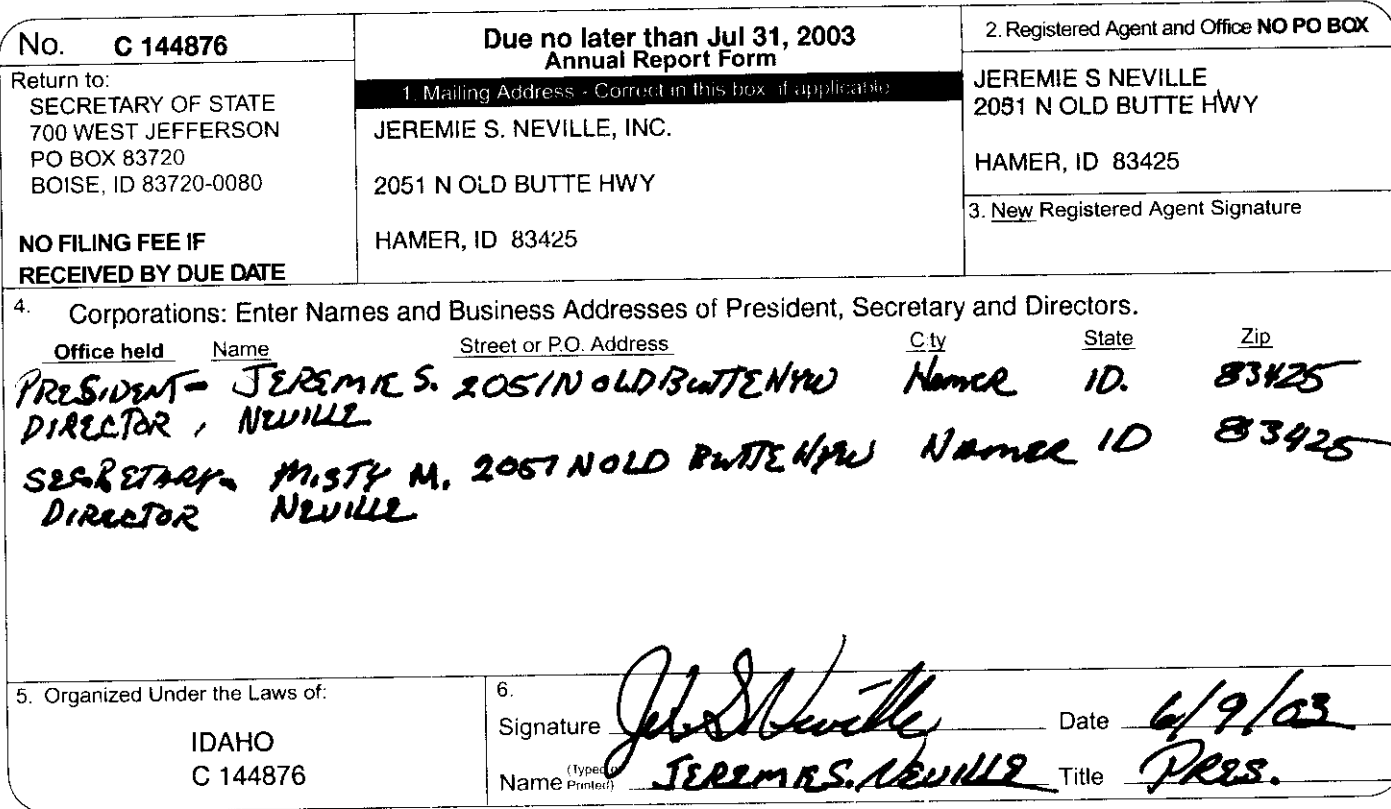 No. C 144876
Return to:
SECRETARY OF STATE
700 WEST JEFFERSON
PO BOX 83720
BOISE, ID 83720-0080
NO FILING FEE IF
RECEIVED BY DUE DATE
Due no later than Jul 31, 2003
Annual Report Form
1. Mailing Address - Correct in this box if applicable
JEREMIE S. NEVILLE, INC.
2051 N OLD BUTTE HWY
HAMER, ID 83425
2. Registered Agent and Office NO PO BOX
JEREMIE S NEVILLE
2051 N OLD BUTTE HWY
HAMER, ID 83425
3. New Registered Agent Signature
4. Corporations: Enter Names and Business Addresses of President, Secretary and Directors.
Office held Name Street or P.O. Address City State Zip
PRESIDENT- JEREMIE S. 2051 N OLD BUTTE HYW Hamer ID. 83425
DIRECTOR, NEVILLE
SECRETARY- MISTY M. 2051 N OLD BUTTE HYW HAMER ID 83425
DIRECTOR NEVILLE
5. Organized Under the Laws of:
IDAHO
C 144876
6.
Signature Date 6/9/03
Name (Typed or Printed) JEREMIE S. NEVILLE Title PRES.